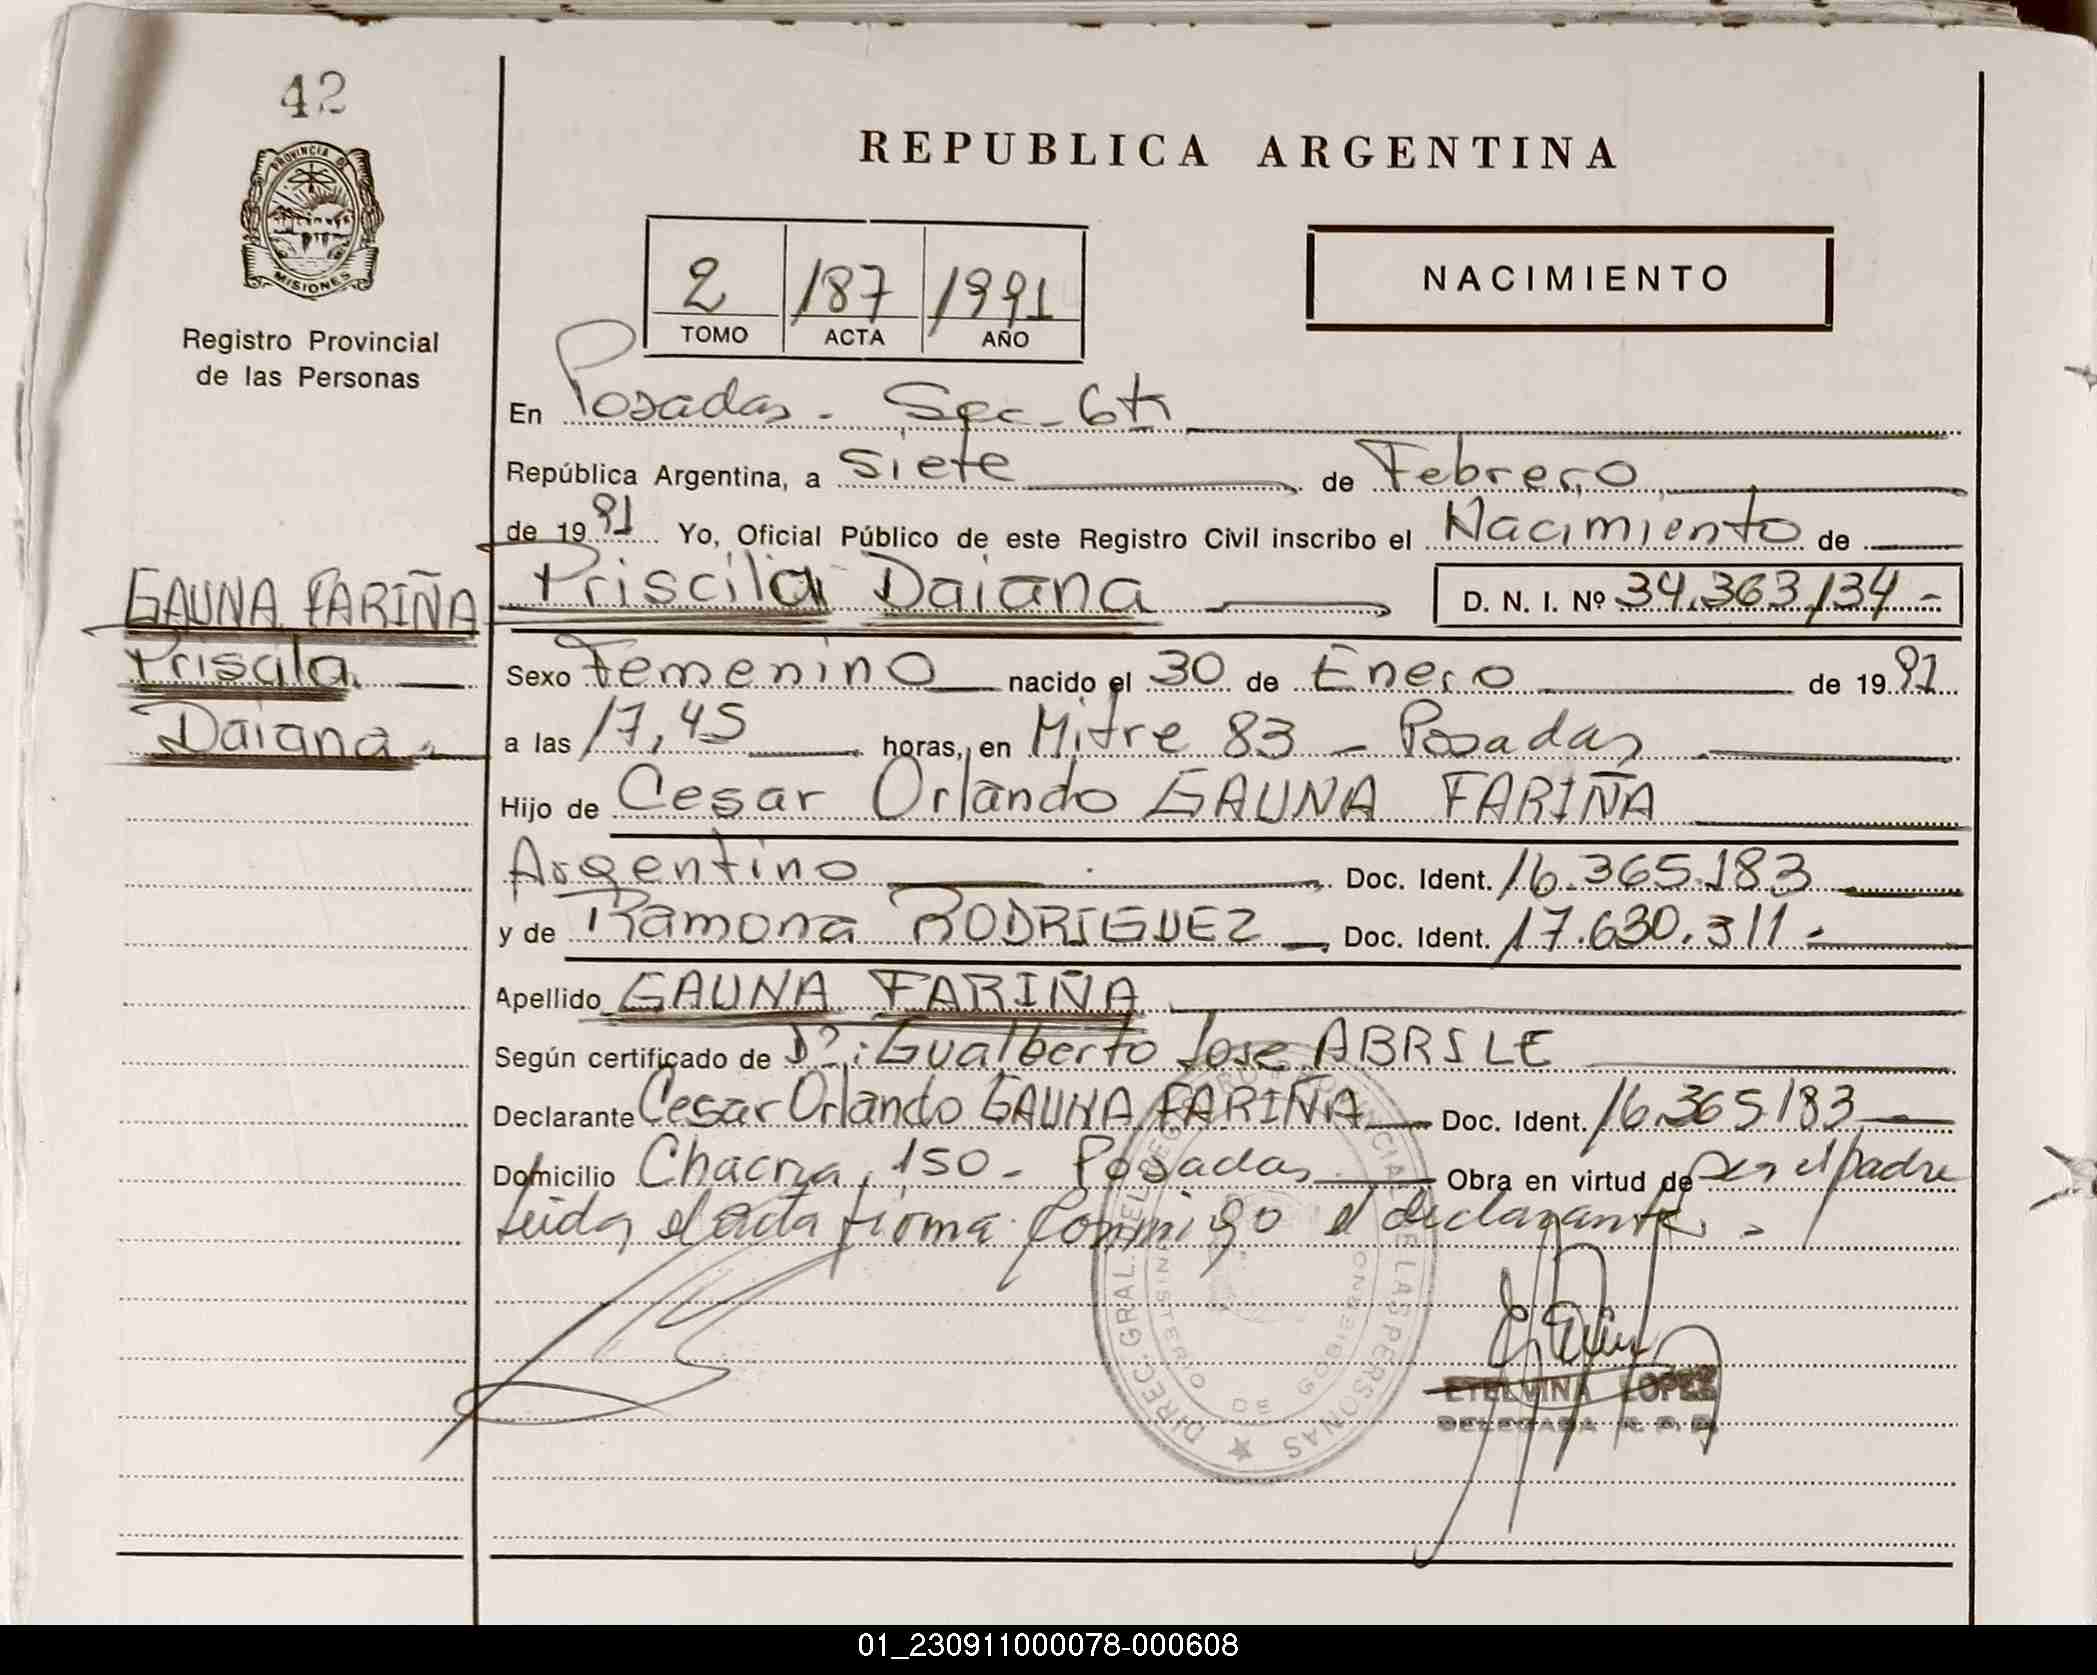 42
PROVINCIA DE
MISIONES
Registro Provincial
de las Personas
REPUBLICA ARGENTINA
2 187 1991
TOMO ACTA AÑO
NACIMIENTO
En Posadas - Sec - 6ta
República Argentina, a Siete de Febrero
de 1991 Yo, Oficial Público de este Registro Civil inscribo el Nacimiento de
GAUNA FARIÑA
Priscila
Daiana.
Priscila Daiana D. N. I. Nº 34.363.134 -
Sexo Femenino nacido el 30 de Enero de 1991
a las 17,45 horas, en Mitre 83 - Posadas
Hijo de Cesar Orlando GAUNA FARIÑA
Argentino Doc. Ident. 16.365.183
y de Ramona RODRIGUEZ Doc. Ident. 17.630.311.
Apellido GAUNA FARIÑA
Según certificado de Dº: Gualberto Jose ABRILE
Declarante Cesar Orlando GAUNA FARIÑA Doc. Ident. 16.365.183
Domicilio Chacra 150 - Posadas Obra en virtud de ser el padre
Leida el acta firma conmigo el declarante. -
DIREC. GRAL. DEL REGISTRO PROVINCIAL DE LAS PERSONAS
MINISTERIO DE GOBIERNO
ETELVINA LOPEZ
DELEGADA R. P. P.
01_230911000078-000608